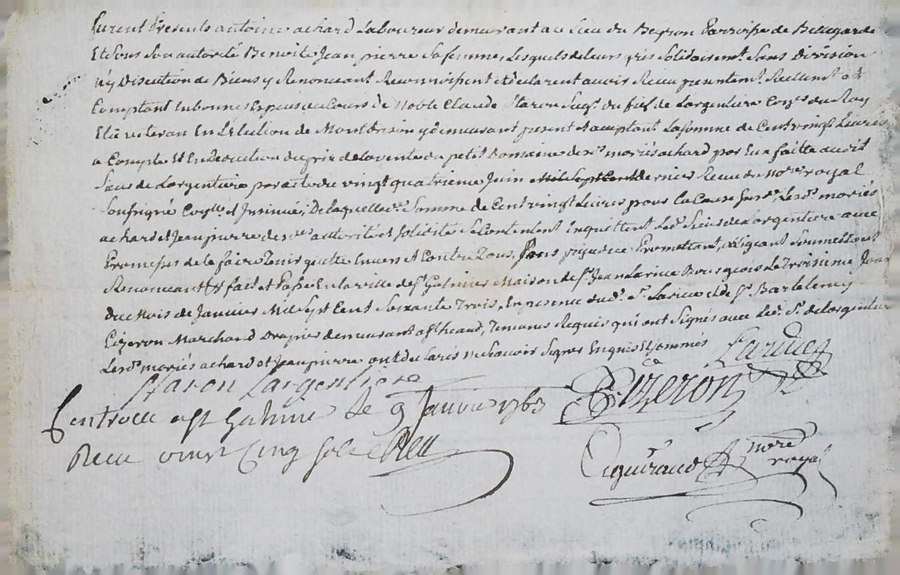 furent Présents antoine achard Laboureur demeurant au Lieu du Beyron Parroisse de Bellegarde
Et Sous Son autorité Benoite Jean pierre Sa femme, Lesquels de leurs grés Solidairemt. Sans Division
ny Discution de Biens y Renoncant Reconnoissent et declarent avoir Recu presentemt. Reellemt. et
Comptant En bonnes Especes au Cours de Noble Claude Staron Sugr. du fief de Largentiere Coner. du Roy
En L'Election de Montbrison y demeurant present et acceptant La Somme de Cent vingt Livres
a Compte Et En Deduction du prix de la vente du petit Domaine des. mariés achard par Eux faitte audit
Sieur de Largentiere par acte du vingt quatrieme Juin Mil Sept Cent dernier Recu du Nore. royal
Soussigné Conlle. et Insinué, De laquelle de. Somme de Cent vingt Livres pour la Cause Susde. Lesds. mariés
achard et Jean pierre de de. autorité et Solidité Se Contentent En quittent Led. Sieur de Largentiere avec
Promesses de la faire Tenir quitte Envers et Contre Tous, Sans prejudice Promettant, obligeant Soumettant
Renoncant &. fait et Passé En la ville de St. Galmier Maison de Sr. Jean Larüe Bourgeois Le Troisieme Jour
du Mois de Janvier Mil Sept Cent Soixante Trois, En presence dud. Sr. Larüe et de Sr. Bartelemy
Eizeron Marchand Drapier demeurant a St. heand, Temoins Requis qui ont Signés avec Led. Sr. de Largentiere
Lesds. mariés achard et Jean pierre ont declarés ne Scavoir Signer Enquis et Sommés
Staron Largentiere
Larüe
Eizeron
Controllé a St Galmier le 9 Janvier 1763
Recu vingt Cinq sols
Nore royal